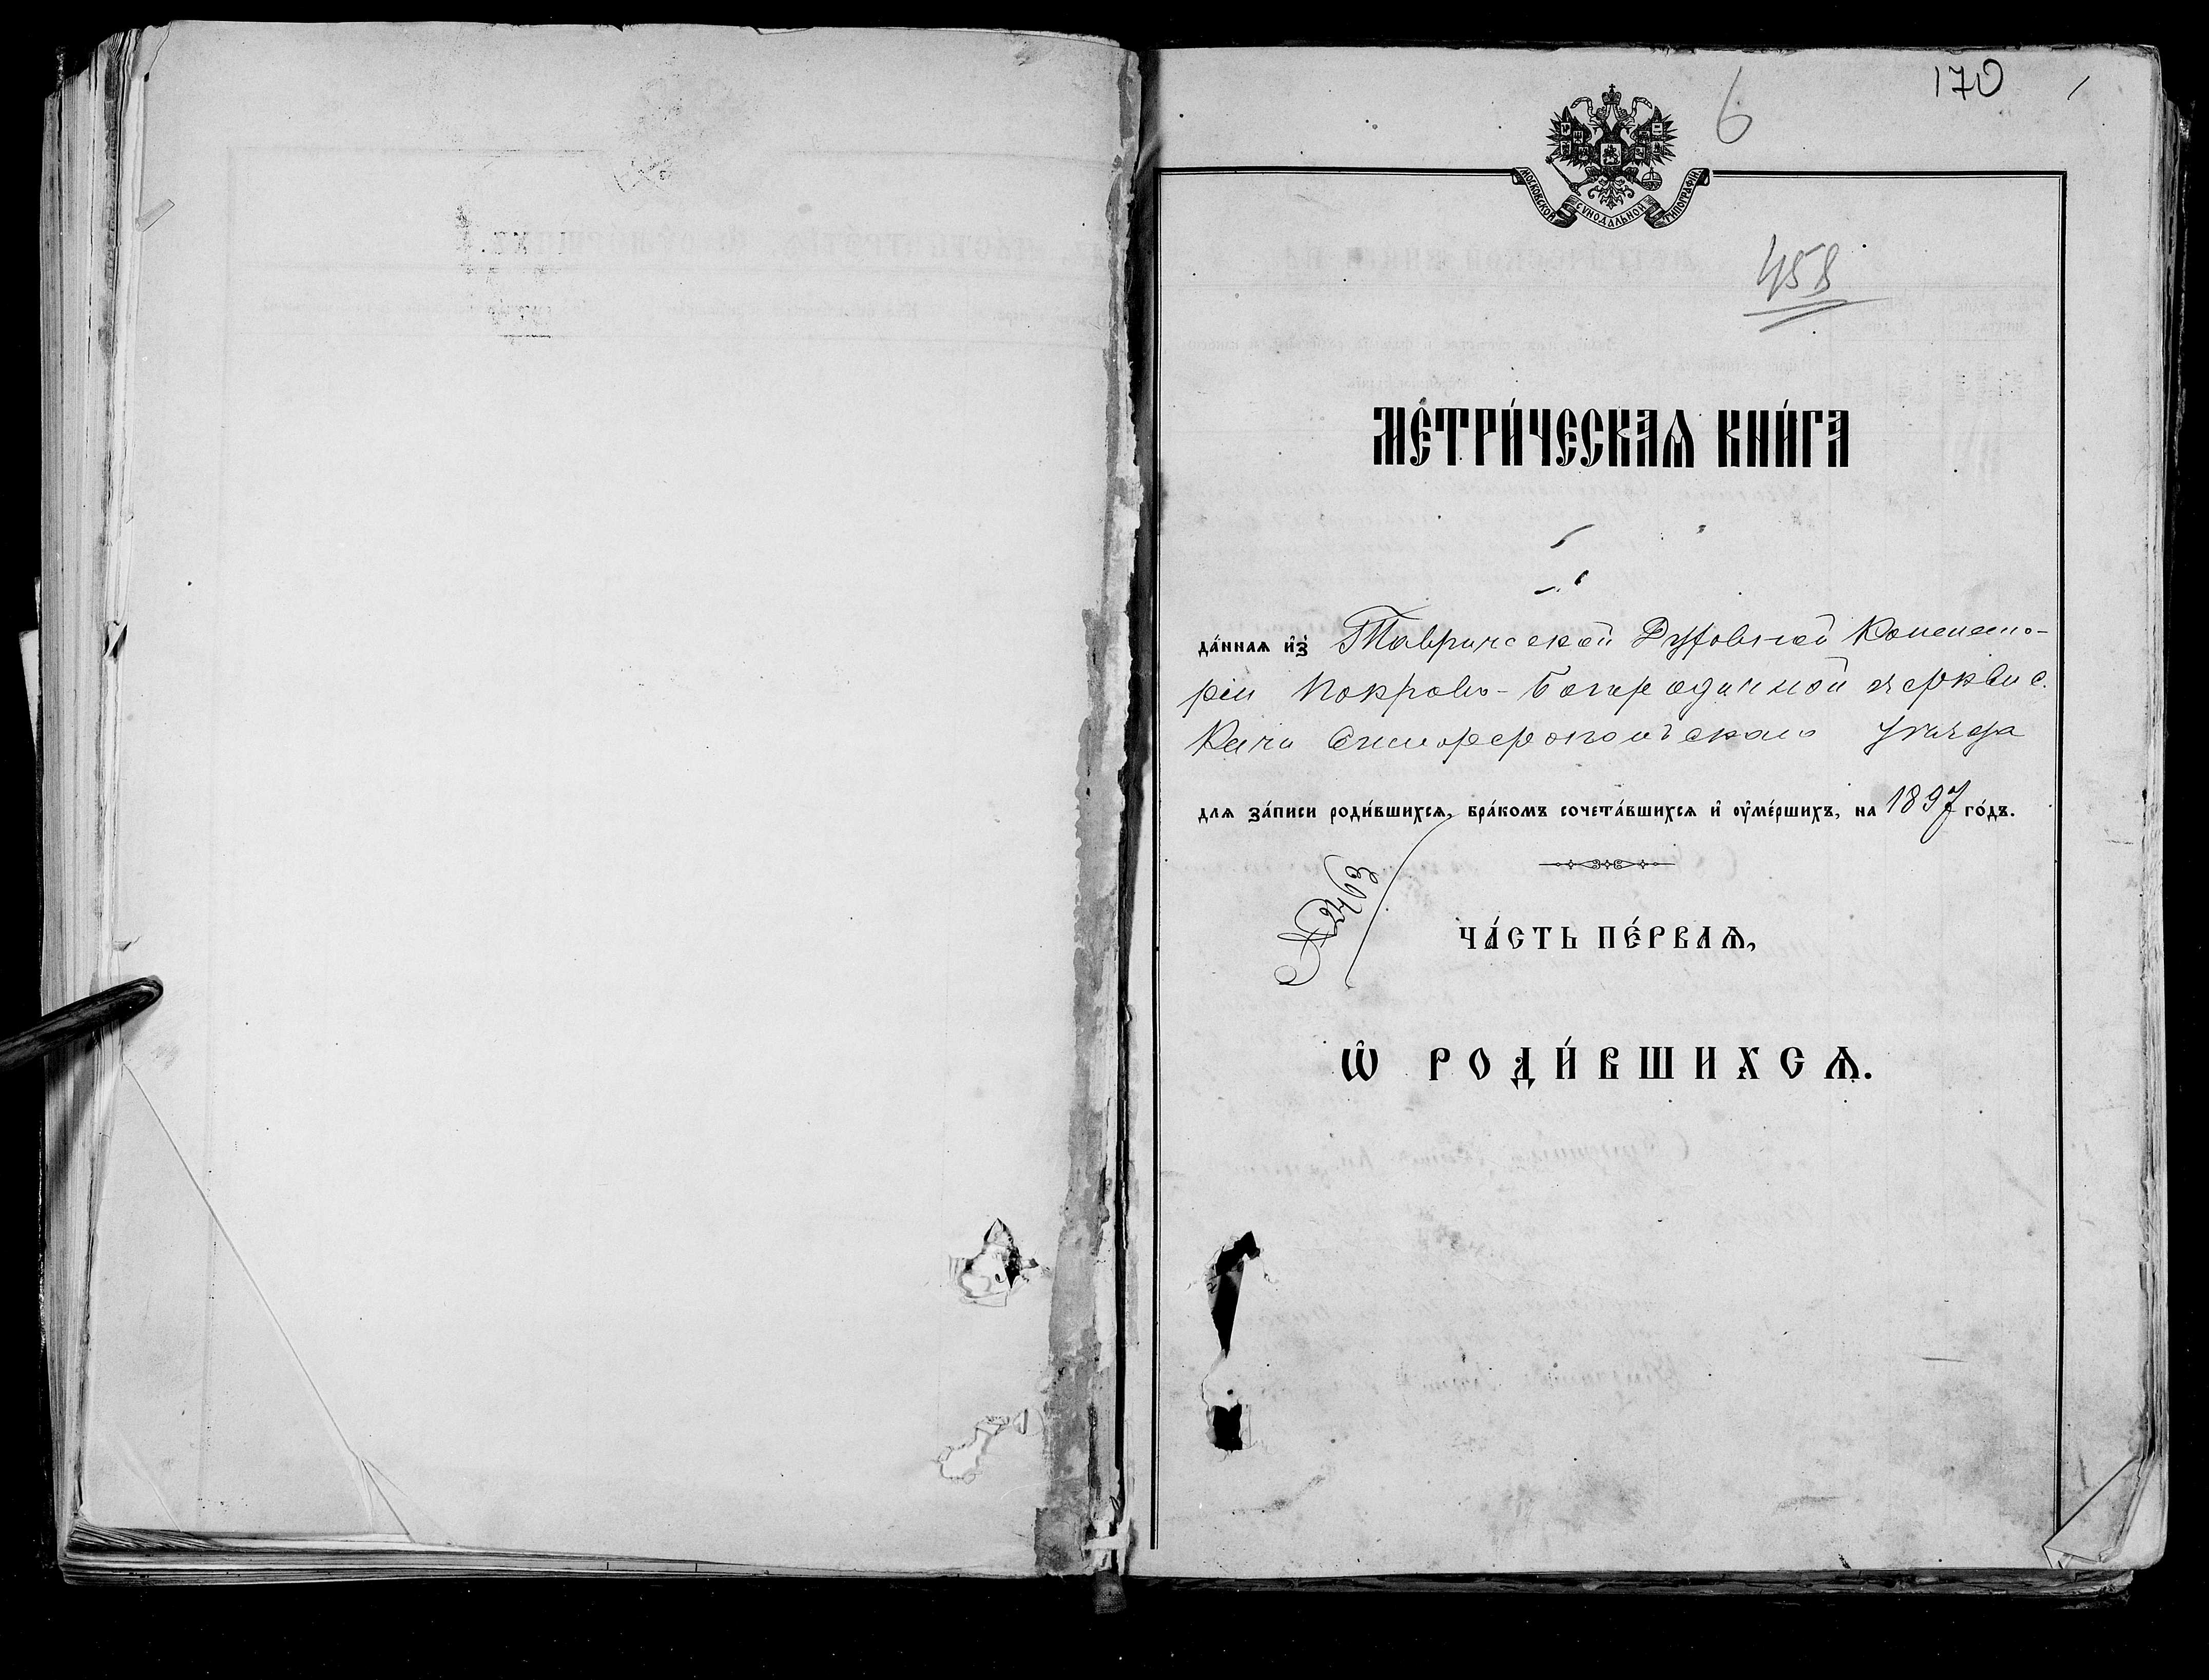 6
170
МОСКОВСКОЙ СѴНОДАЛЬНОЙ ТИПОГРАФІИ
458
МЕТРИ́ЧЕСКАѦ КНИ́ГА
да́ннаѧ и҆з̾ Таврической Духовной Консисто-
ріи Покрово-Богородичной церкви с.
Качи Симферопольскаго уѣзда
длѧ за́писи роди́вшихсѧ, бра́комъ сочета́вшихсѧ и҆ оу҆ме́ршихъ, на 1897 го́дъ.
№ 2463
ЧА́СТЬ ПЕ́РВАѦ,
Ѡ҆ РОДИ́ВШИХСѦ.